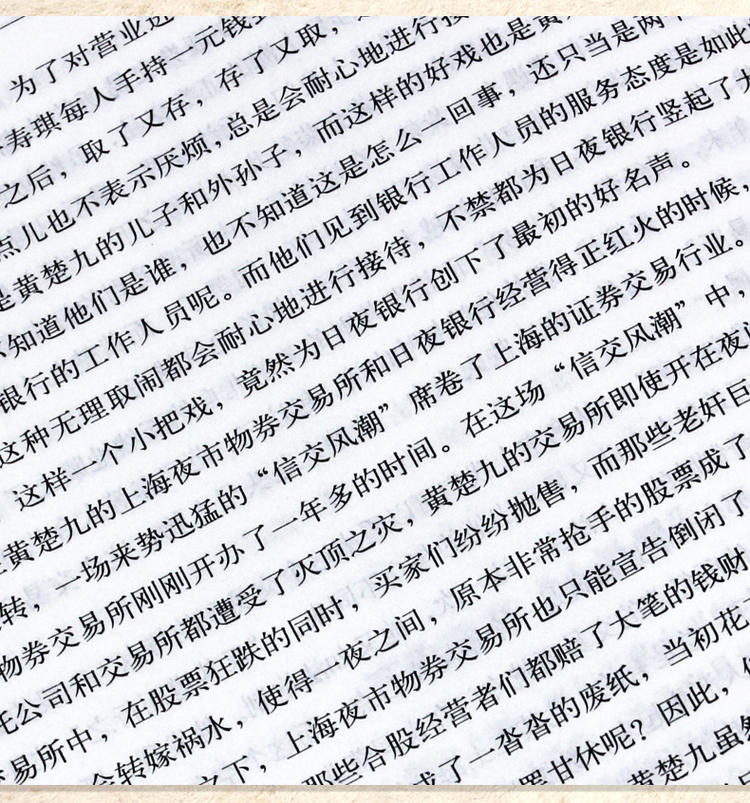 为了对营业进
寿琪每人手持一元钱
之后，取了又存，存了又取，
点儿也不表示厌烦，总是会耐心地进行接
是黄楚九的儿子和外孙子，而这样的好戏也是黄
不知道他们是谁，也不知道这是怎么一回事，还只当是两个
银行的工作人员呢。而他们见到银行工作人员的服务态度是如此
这种无理取闹都会耐心地进行接待，不禁都为日夜银行竖起了大
这样一个小把戏，竟然为日夜银行创下了最初的好名声。
黄楚九的上海夜市物券交易所和日夜银行经营得正红火的时候，
转，一场来势迅猛的“信交风潮”席卷了上海的证券交易行业。
物券交易所刚刚开办了一年多的时间。在这场“信交风潮”中，
托公司和交易所都遭受了灭顶之灾，黄楚九的交易所即使开在夜
交易所中，在股票狂跌的同时，买家们纷纷抛售，而那些老奸巨
会转嫁祸水，使得一夜之间，原本非常抢手的股票成了
之下，上海夜市物券交易所也只能宣告倒闭了
那些合股经营者们都赔了大笔的钱财
成了一沓沓的废纸，当初花
罢甘休呢？因此，
黄楚九虽然